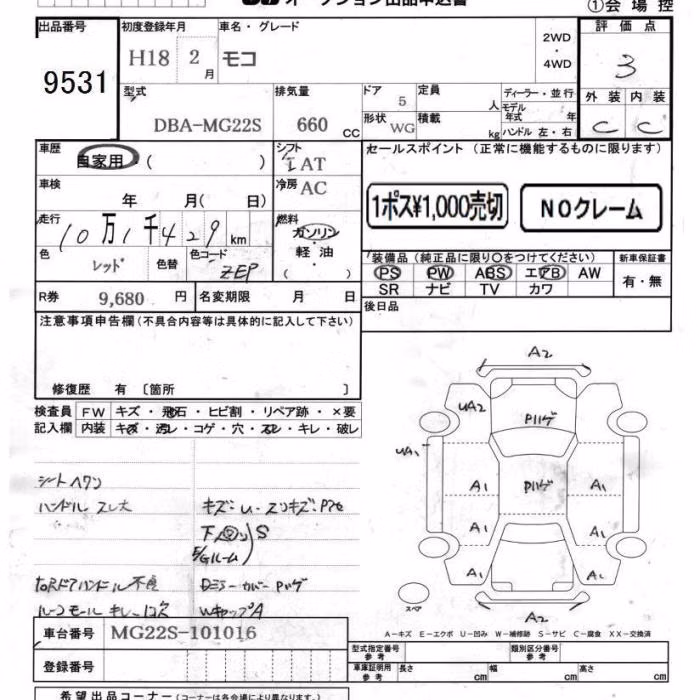 オークション出品申込書
①会場控
出品番号
9531
初度登録年月
H18 2 月
車名・グレード
モコ
2WD
・
4WD
評価点
3
型式
DBA-MG22S
排気量
660 CC
ドア
5
定員
人
ディーラー・並行
モデル
年式 年
形状
WG
積載
kg
ハンドル 左・右
外装 内装
C C
車歴
自家用 ( )
シフト
IAT
セールスポイント (正常に機能するものに限ります)
車検
年 月( 日)
冷房
AC
1ポス¥1,000売切
NOクレーム
走行
10万1千429km
燃料
ガソリン
軽油
( )
色
レッド
色替
色コード
ZEP
装備品 (純正品に限り○をつけてください)
PS PW ABS エアB AW
SR ナビ TV カワ
新車保証書
有・無
R券 9,680 円
名変期限 月 日
後日品
注意事項申告欄(不具合内容等は具体的に記入して下さい)
修復歴 有 〔箇所 〕
検査員
記入欄
FW キズ・飛石・ヒビ割・リペア跡・×要
内装 キズ・汚レ・コゲ・穴・スレ・キレ・破レ
シートヘタリ
ハンドルスレ大
キズ・U・スリキズ・Pアセ
S
E/Gルーム
右Rドアハンドル不良
DミラーカバーPハゲ
WキャップA
A2
UA2
Pハゲ
UA1
A1
Pハゲ
A1
A1
A1
A1
A1
A2
スペア
A-キズ E-エクボ U-凹み W-補修跡 S-サビ C-腐食 XX-交換済
車台番号
MG22S-101016
登録番号
型式指定番号
参考
類別区分番号
参考
車庫証明用
参考
長さ cm
幅 cm
高さ cm
希望出品コーナー(コーナーは各会場により異なります。)